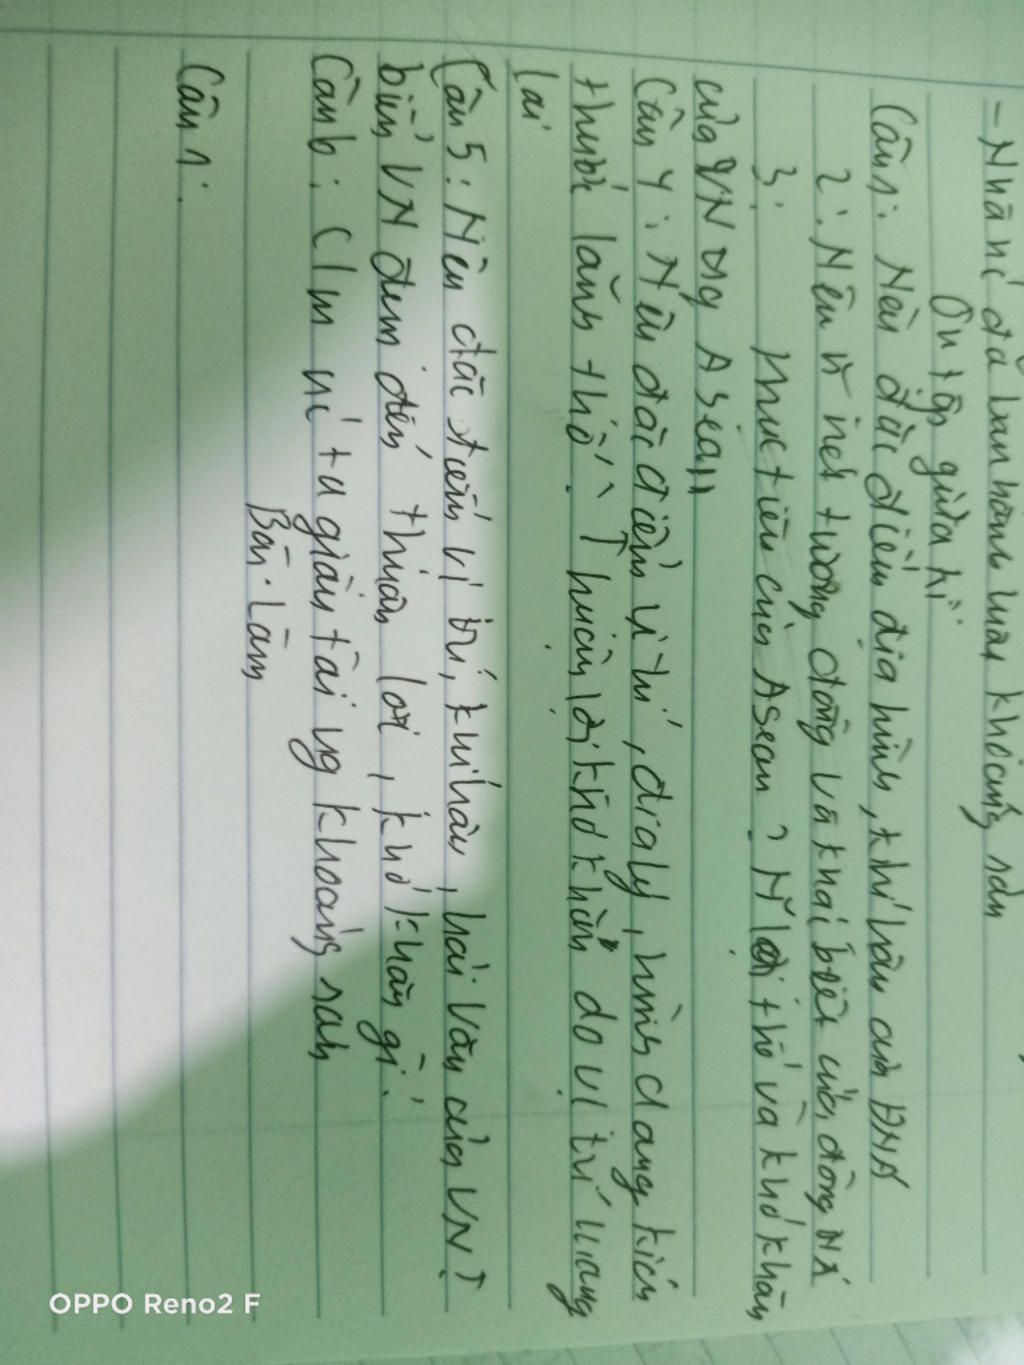 - Nhà nc đã ban hành luật khoáng sản
Ôn tập giữa kì
Câu 1: Nêu đặc điểm địa hình, khí hậu của ĐNÁ
2: Nêu n̛ nét tương đồng và khác biệt của đông NÁ
3: Mục tiêu của Asean? N̛ lợi thế và khó khăn
của VN trong Asean
Câu 4: Nêu đặc điểm vị trí, địa lý, hình dạng kích
thước lãnh thổ. Thuận lợi khó khăn do vị trí mang
lại
Câu 5: Nêu đặc điểm vị trí, khí hậu, hải văn của VN?
biển VN đem đến thuận lợi, khó khăn gì.
Câu 6: C/m nc ta giàu tài ng khoáng sản
Bài Làm
Câu 1:
OPPO Reno2 F